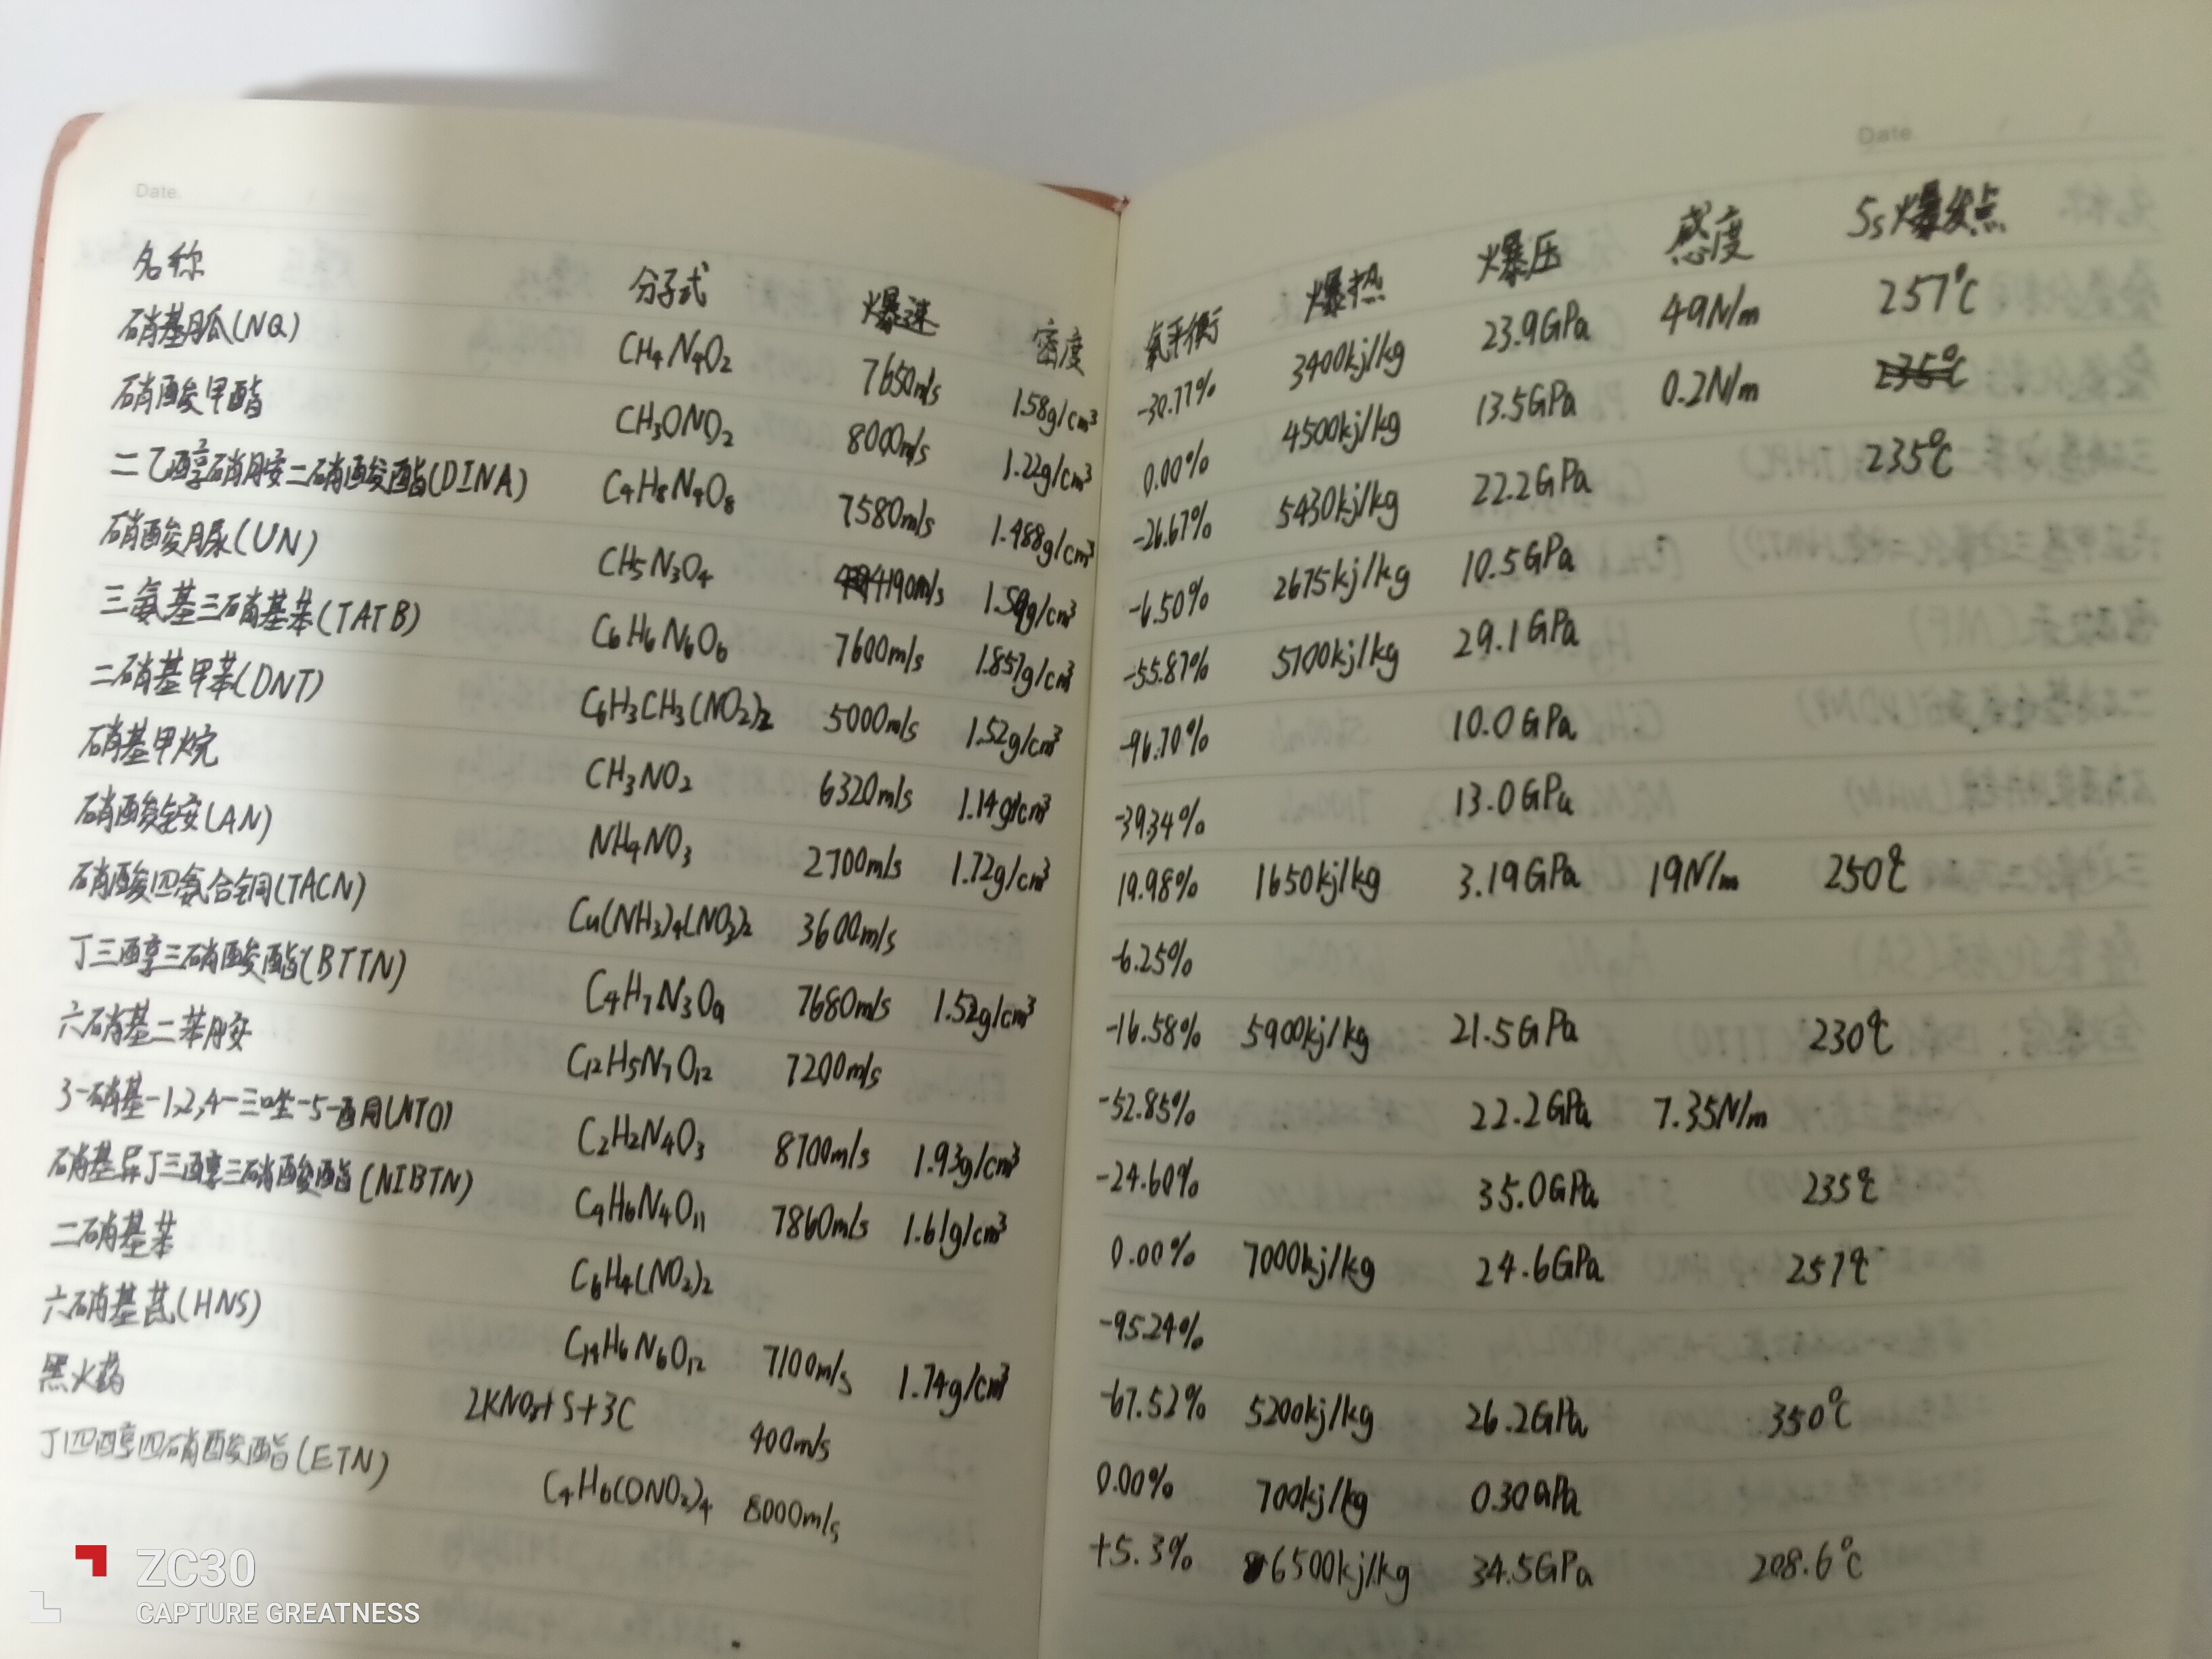 Date
Date
名称 分子式 爆速 密度 氧平衡 爆热 爆压 感度 5s爆发点
硝基胍(NQ) CH4N4O2 7650m/s 1.58g/cm³ -30.77% 3400kj/kg 23.9GPa 49N/m 257℃
硝酸甲酯 CH3ONO2 8000m/s 1.22g/cm³ 0.00% 4500kj/kg 13.5GPa 0.2N/m 235℃
二乙醇硝胺二硝酸酯(DINA) C4H8N4O8 7580m/s 1.488g/cm³ -26.67% 5430kj/kg 22.2GPa 235℃
硝酸脲(UN) CH5N3O4 4190m/s 1.59g/cm³ -6.50% 2675kj/kg 10.5GPa
三氨基三硝基苯(TATB) C6H6N6O6 7600m/s 1.857g/cm³ -55.87% 5100kj/kg 29.1GPa
二硝基甲苯(DNT) C6H3CH3(NO2)2 5000m/s 1.52g/cm³ -96.70% 10.0GPa
硝基甲烷 CH3NO2 6320m/s 1.14g/cm³ -39.34% 13.0GPa
硝酸铵(AN) NH4NO3 2700m/s 1.72g/cm³ 19.98% 1650kj/kg 3.19GPa 19N/m 250℃
硝酸四氨合铜(TACN) Cu(NH3)4(NO3)2 3600m/s -6.25%
丁三醇三硝酸酯(BTTN) C4H7N3O9 7680m/s 1.52g/cm³ -16.58% 5900kj/kg 21.5GPa 230℃
六硝基二苯胺 C12H5N7O12 7200m/s -52.85% 22.2GPa 7.35N/m
3-硝基-1,2,4-三唑-5-酮(NTO) C2H2N4O3 8700m/s 1.93g/cm³ -24.60% 35.0GPa 235℃
硝基异丁三醇三硝酸酯(NIBTN) C4H6N4O11 7860m/s 1.61g/cm³ 0.00% 7000kj/kg 24.6GPa 257℃
二硝基苯 C6H4(NO2)2 -95.24%
六硝基芪(HNS) C14H6N6O12 7100m/s 1.74g/cm³ -67.52% 5200kj/kg 26.2GPa 350℃
黑火药 2KNO3+S+3C 400m/s 0.00% 700kj/kg 0.30GPa
丁四醇四硝酸酯(ETN) C4H6(ONO2)4 8000m/s +5.3% 6500kj/kg 34.5GPa 208.6℃
ZC30
CAPTURE GREATNESS